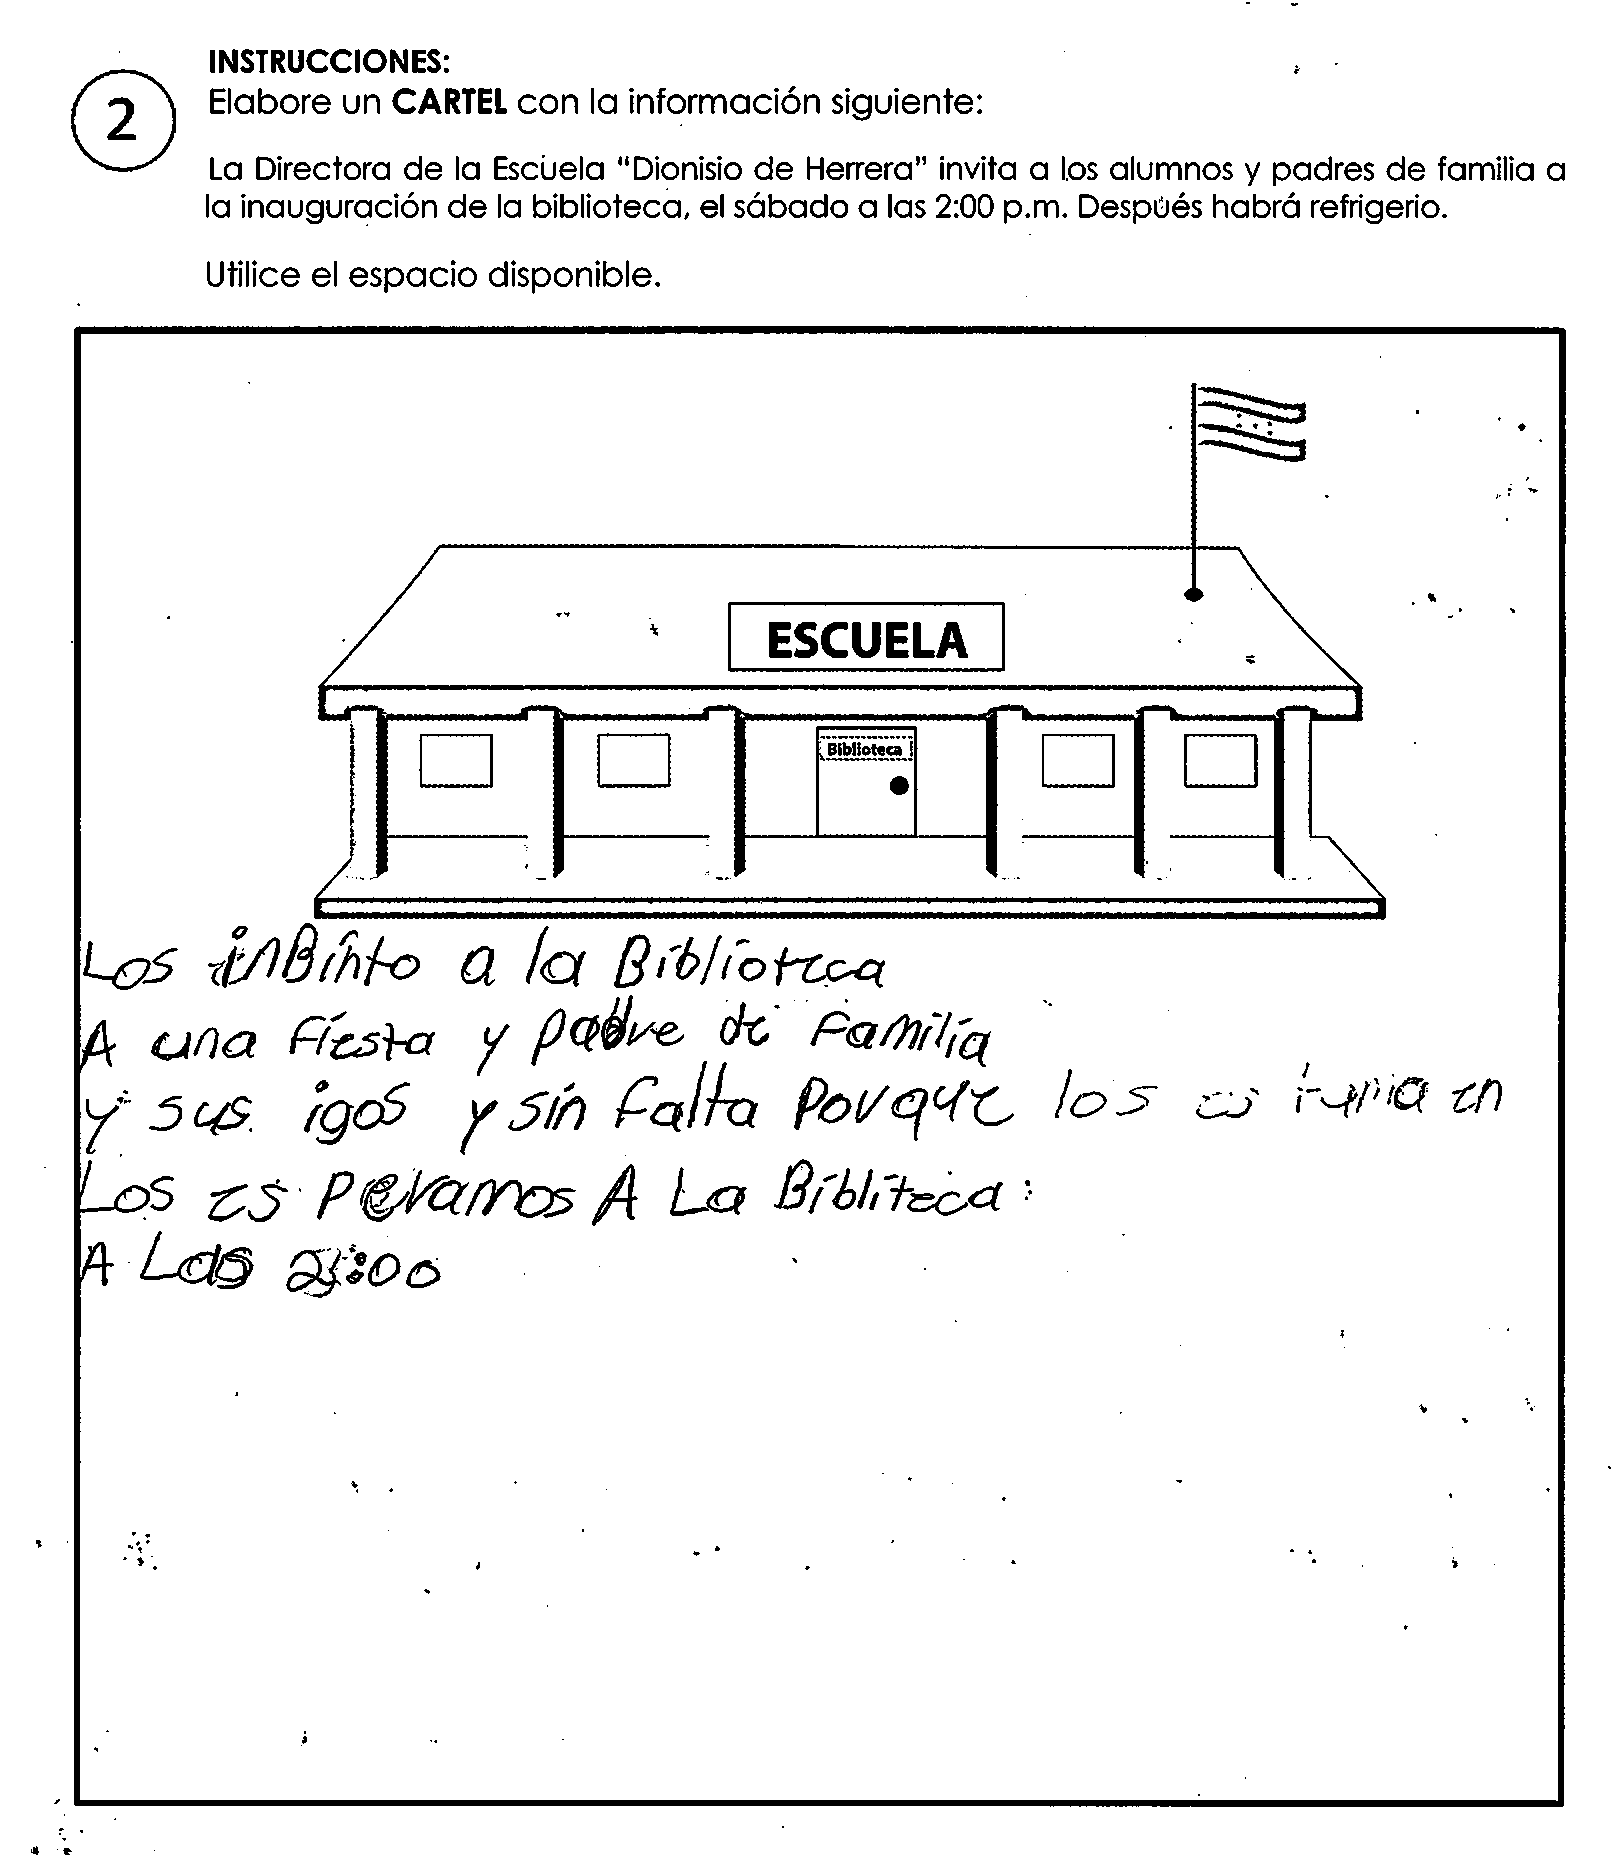 INSTRUCCIONES:
2
Elabore un CARTEL con la información siguiente:
La Directora de la Escuela "Dionisio de Herrera" invita a los alumnos y padres de familia a
la inauguración de la biblioteca, el sábado a las 2:00 p.m. Después habrá refrigerio.
Utilice el espacio disponible.
ESCUELA
Biblioteca
Los inBinto a la Biblioteca
A una Fiesta y padre de Familia
y sus igos y sin falta Porque los
Los es peramos A La Bibliteca:
A Las 2:00